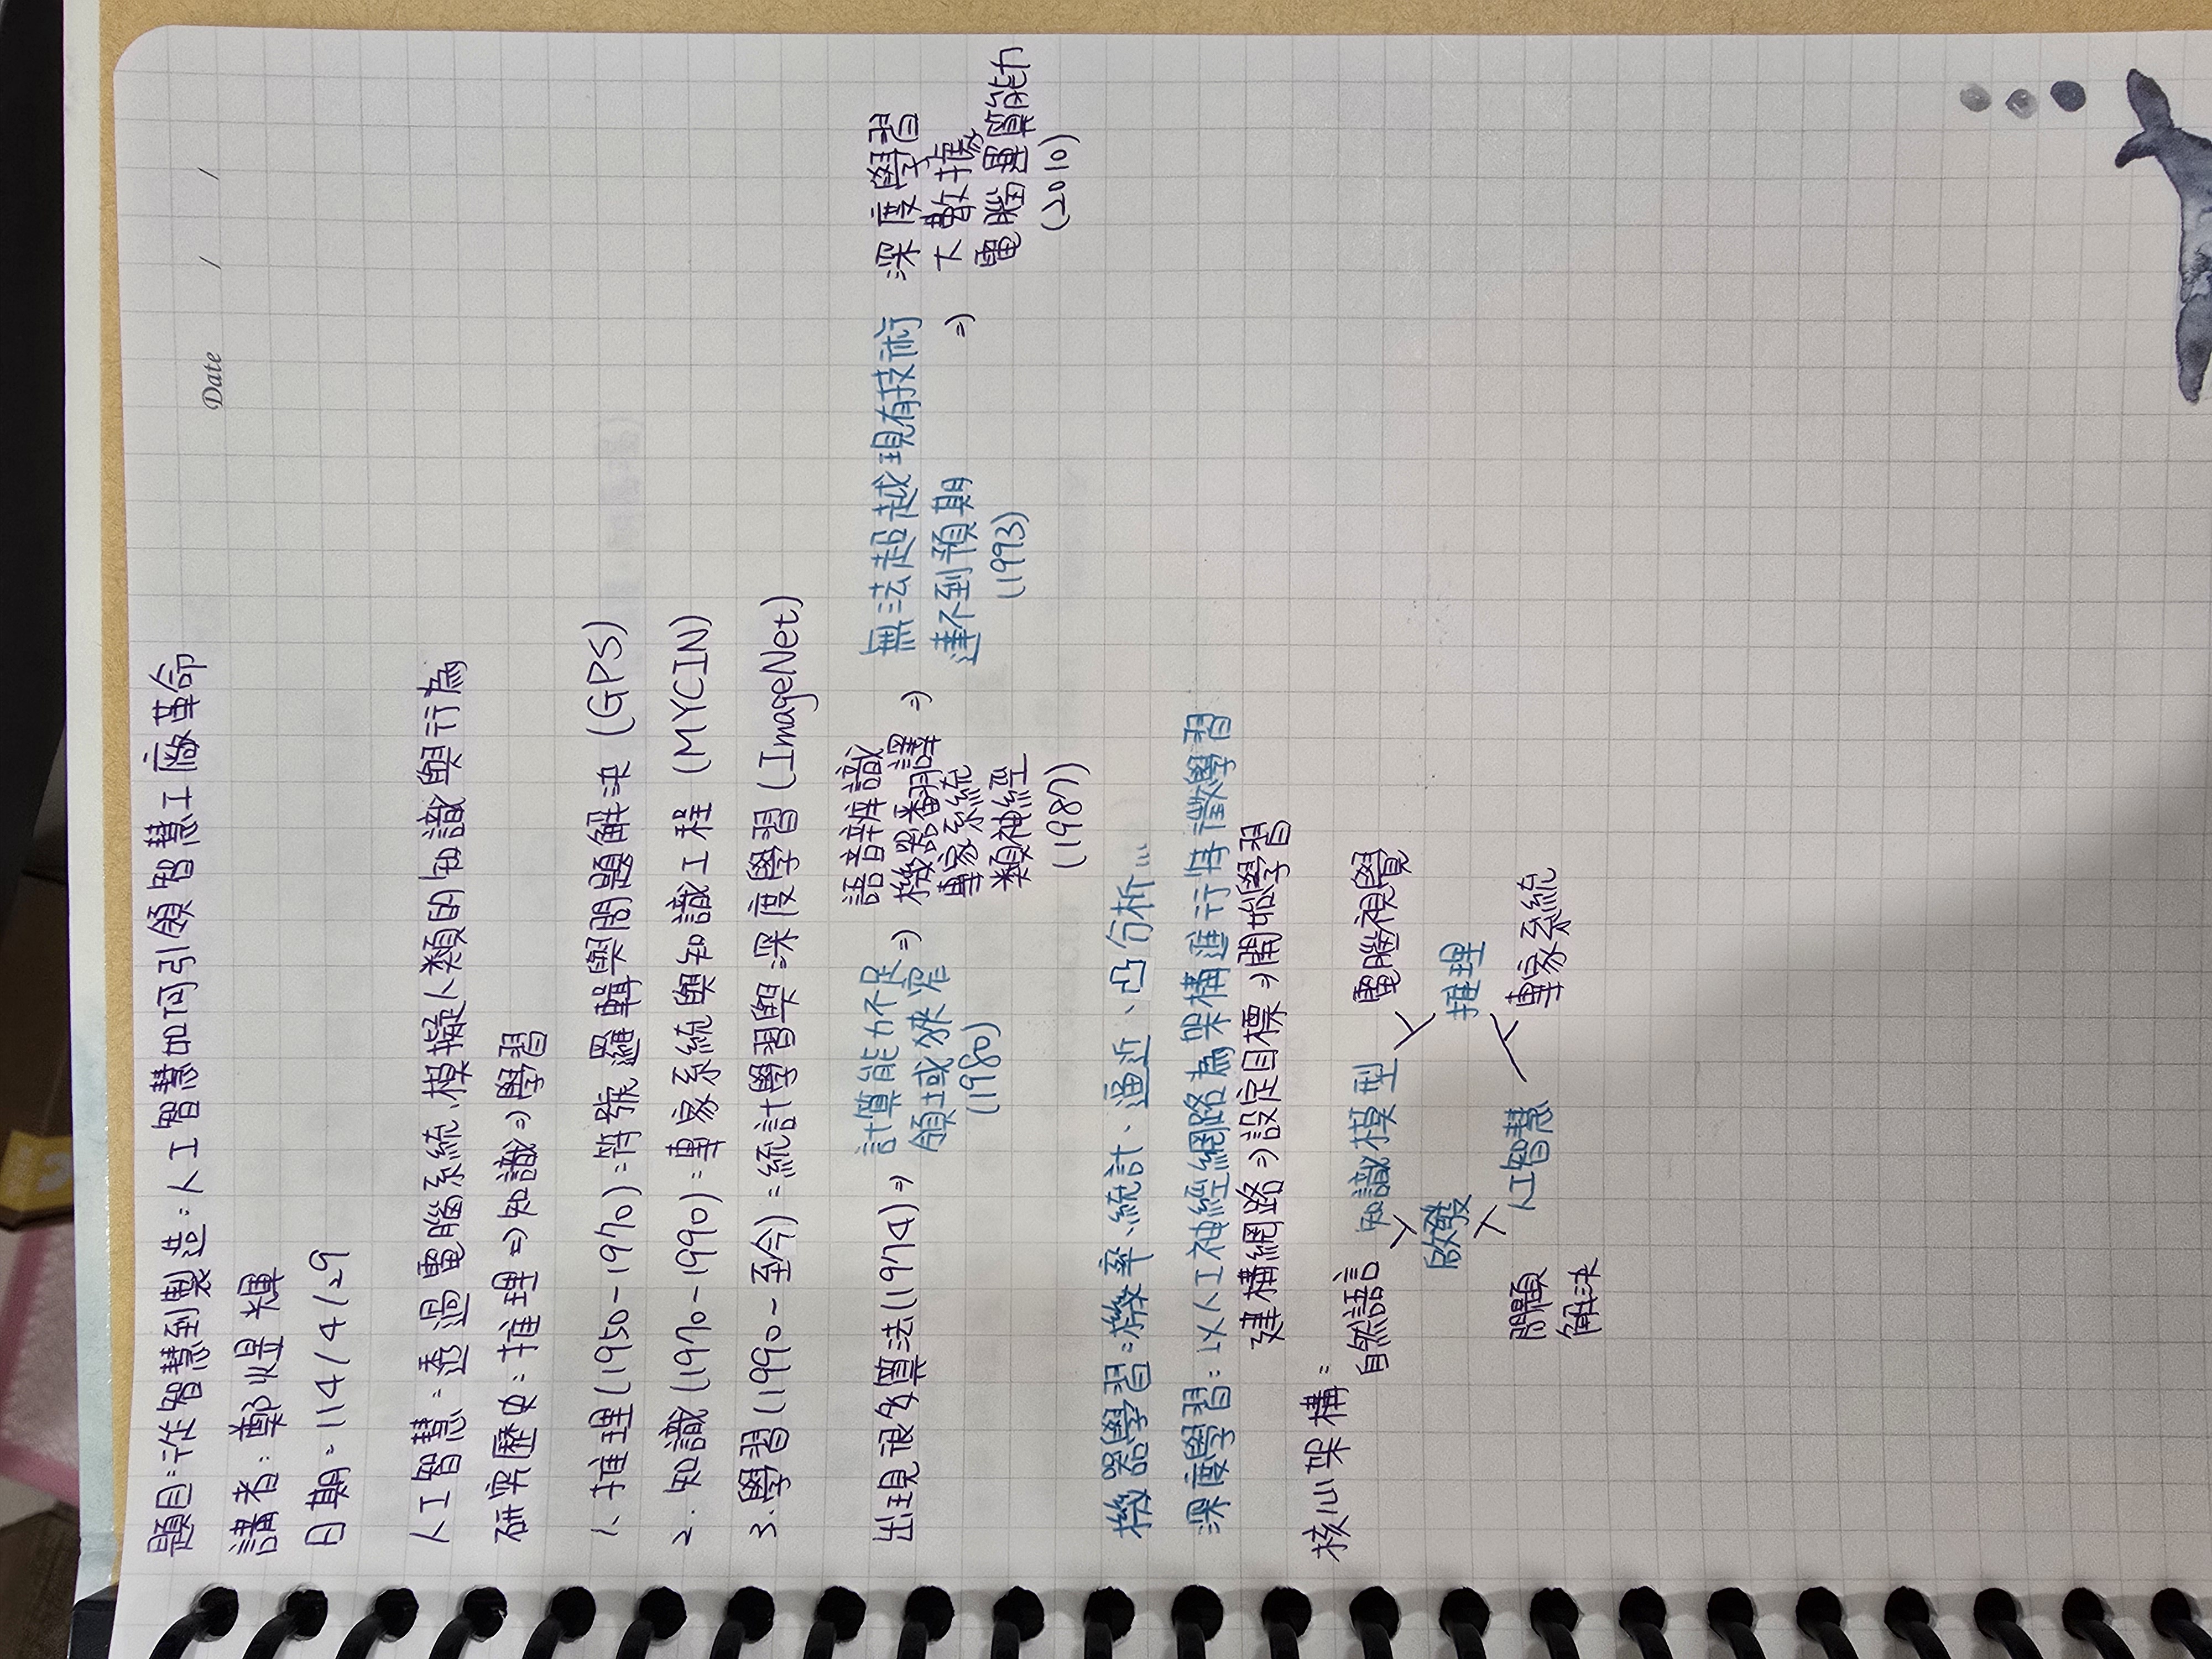 Date / /
題目:從智慧到製造:人工智慧如何引領智慧工廠革命
講者:鄭煜輝
日期:114/4/29
人工智慧:透過電腦系統、模擬人類的知識與行為
研究歷史:推理⇒知識⇒學習
1. 推理(1950-1970):符號邏輯與問題解決(GPS)
2. 知識(1970-1990):專家系統與知識工程(MYCIN)
3. 學習(1990~至今):統計學習與深度學習(ImageNet)
出現很多算法(1974)⇒
計算能力不足
領域狹窄
(1980)
⇒
語音辨識
機器翻譯
專家系統
類神經
(1987)
⇒
無法超越現有技術
達不到預期
(1993)
⇒
深度學習
大數據
電腦運算能力
(2010)
機器學習:機率、統計、逼近、凸分析...
深度學習:以人工神經網路為架構進行特徵學習
建構網路⇒設定目標⇒開始學習
核心架構:
自然語言 知識模型 電腦視覺
啟發 推理
問題 人工智慧 專家系統
解決